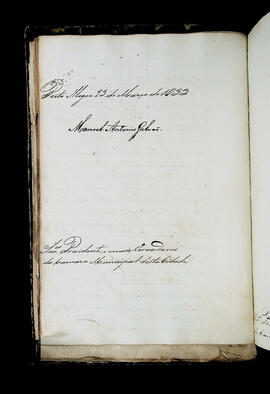 Porto Alegre 23 de Março de 1832
Manoel Antonio Galvão.
Snr. Presidente, e mais Vereadores
da Camara Municipal desta Cidade.